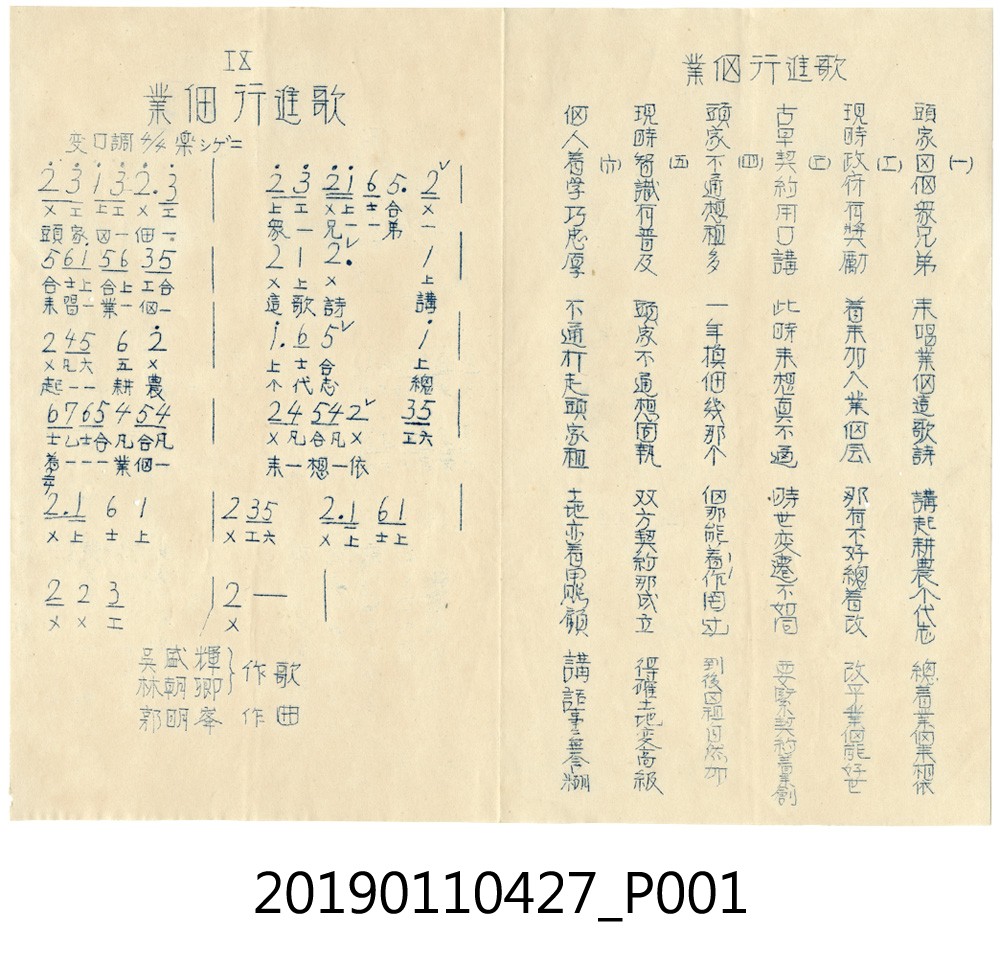 業佃行進歌
(一)
頭家因佃眾兄弟 來唱業佃這歌詩 講起耕農个代志 總着業佃來相依
(二)
現時政府有獎勵 着來加入業佃会 那有不好總着改 改乎業佃能好世
(三)
古早契約用口講 此時來想真不通 時世変遷不如同 要緊契約着來創
(四)
頭家不通想租多 一年換佃幾那个 佃那能着作 到後因租自然加
(五)
現時智識有普及 頭家不通想固執 双方契約那成立 得確土地変高級
(六)
佃人着学巧忠厚 不通打走頭家租 土地亦着甲照顧 講話事
IX
業佃行進歌
変口調 4/4 楽シゲニ
2 3 1 3 2. 3 | 2 3 2 1 6 5. 2 |
メ工上工メ工 上工メ上士合メ
頭家因一佃一 眾一兄一弟一
5 6 1 5 6 3 5 | 2 1 2. 1 |
合士上合上工合 メ上メ上
來習一業一佃一 這歌詩 講
2 4 5 6 2 | 1. 6 5 1 |
メ凡六五メ 上士合上
起一一耕農 个代志 總
6 7 6 5 4 5 4 | 2 4 5 4 2 3 5
士乙士合凡合凡 メ凡合凡メ工六
着一一一業佃一 來一想一依
2. 1 6 1 | 2 3 5 2. 1 6 1 |
メ上士上 メ工六 メ上士上
2 2 3 | 2 — |
メメ工 メ
吳盛輝
林朝卿 } 作歌
郭明峯 作曲
20190110427_P001